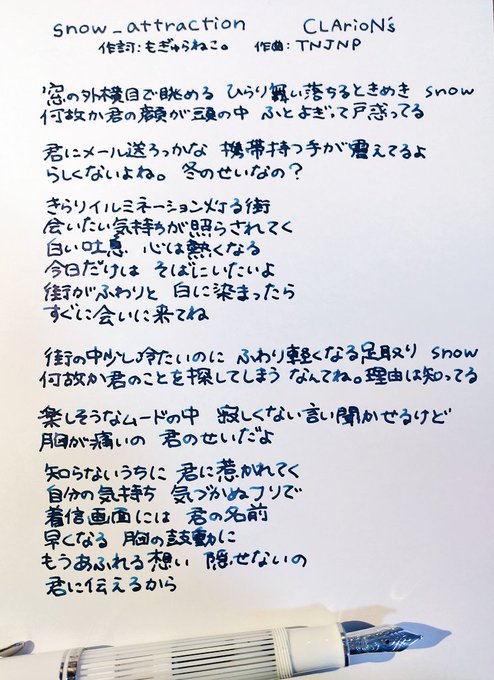 snow_attraction CLArioN's
作詞:もぎゅらねこ。 作曲:TNJNP
窓の外横目で眺める ひらり舞い落ちるときめき snow
何故か君の顔が頭の中 ふとよぎって戸惑ってる
君にメール送ろっかな 携帯持つ手が震えてるよ
らしくないよね。冬のせいなの?
きらりイルミネーション灯る街
会いたい気持ちが照らされてく
白い吐息 心は熱くなる
今日だけは そばにいたいよ
街がふわりと 白に染まったら
すぐに会いに来てね
街の中少し冷たいのに ふわり軽くなる足取り snow
何故か君のことを探してしまう なんてね。理由は知ってる
楽しそうなムードの中 寂しくない言い聞かせるけど
胸が痛いの 君のせいだよ
知らないうちに 君に惹かれてく
自分の気持ち 気づかぬフリで
着信画面には 君の名前
早くなる 胸の鼓動に
もうあふれる想い 隠せないの
君に伝えるから